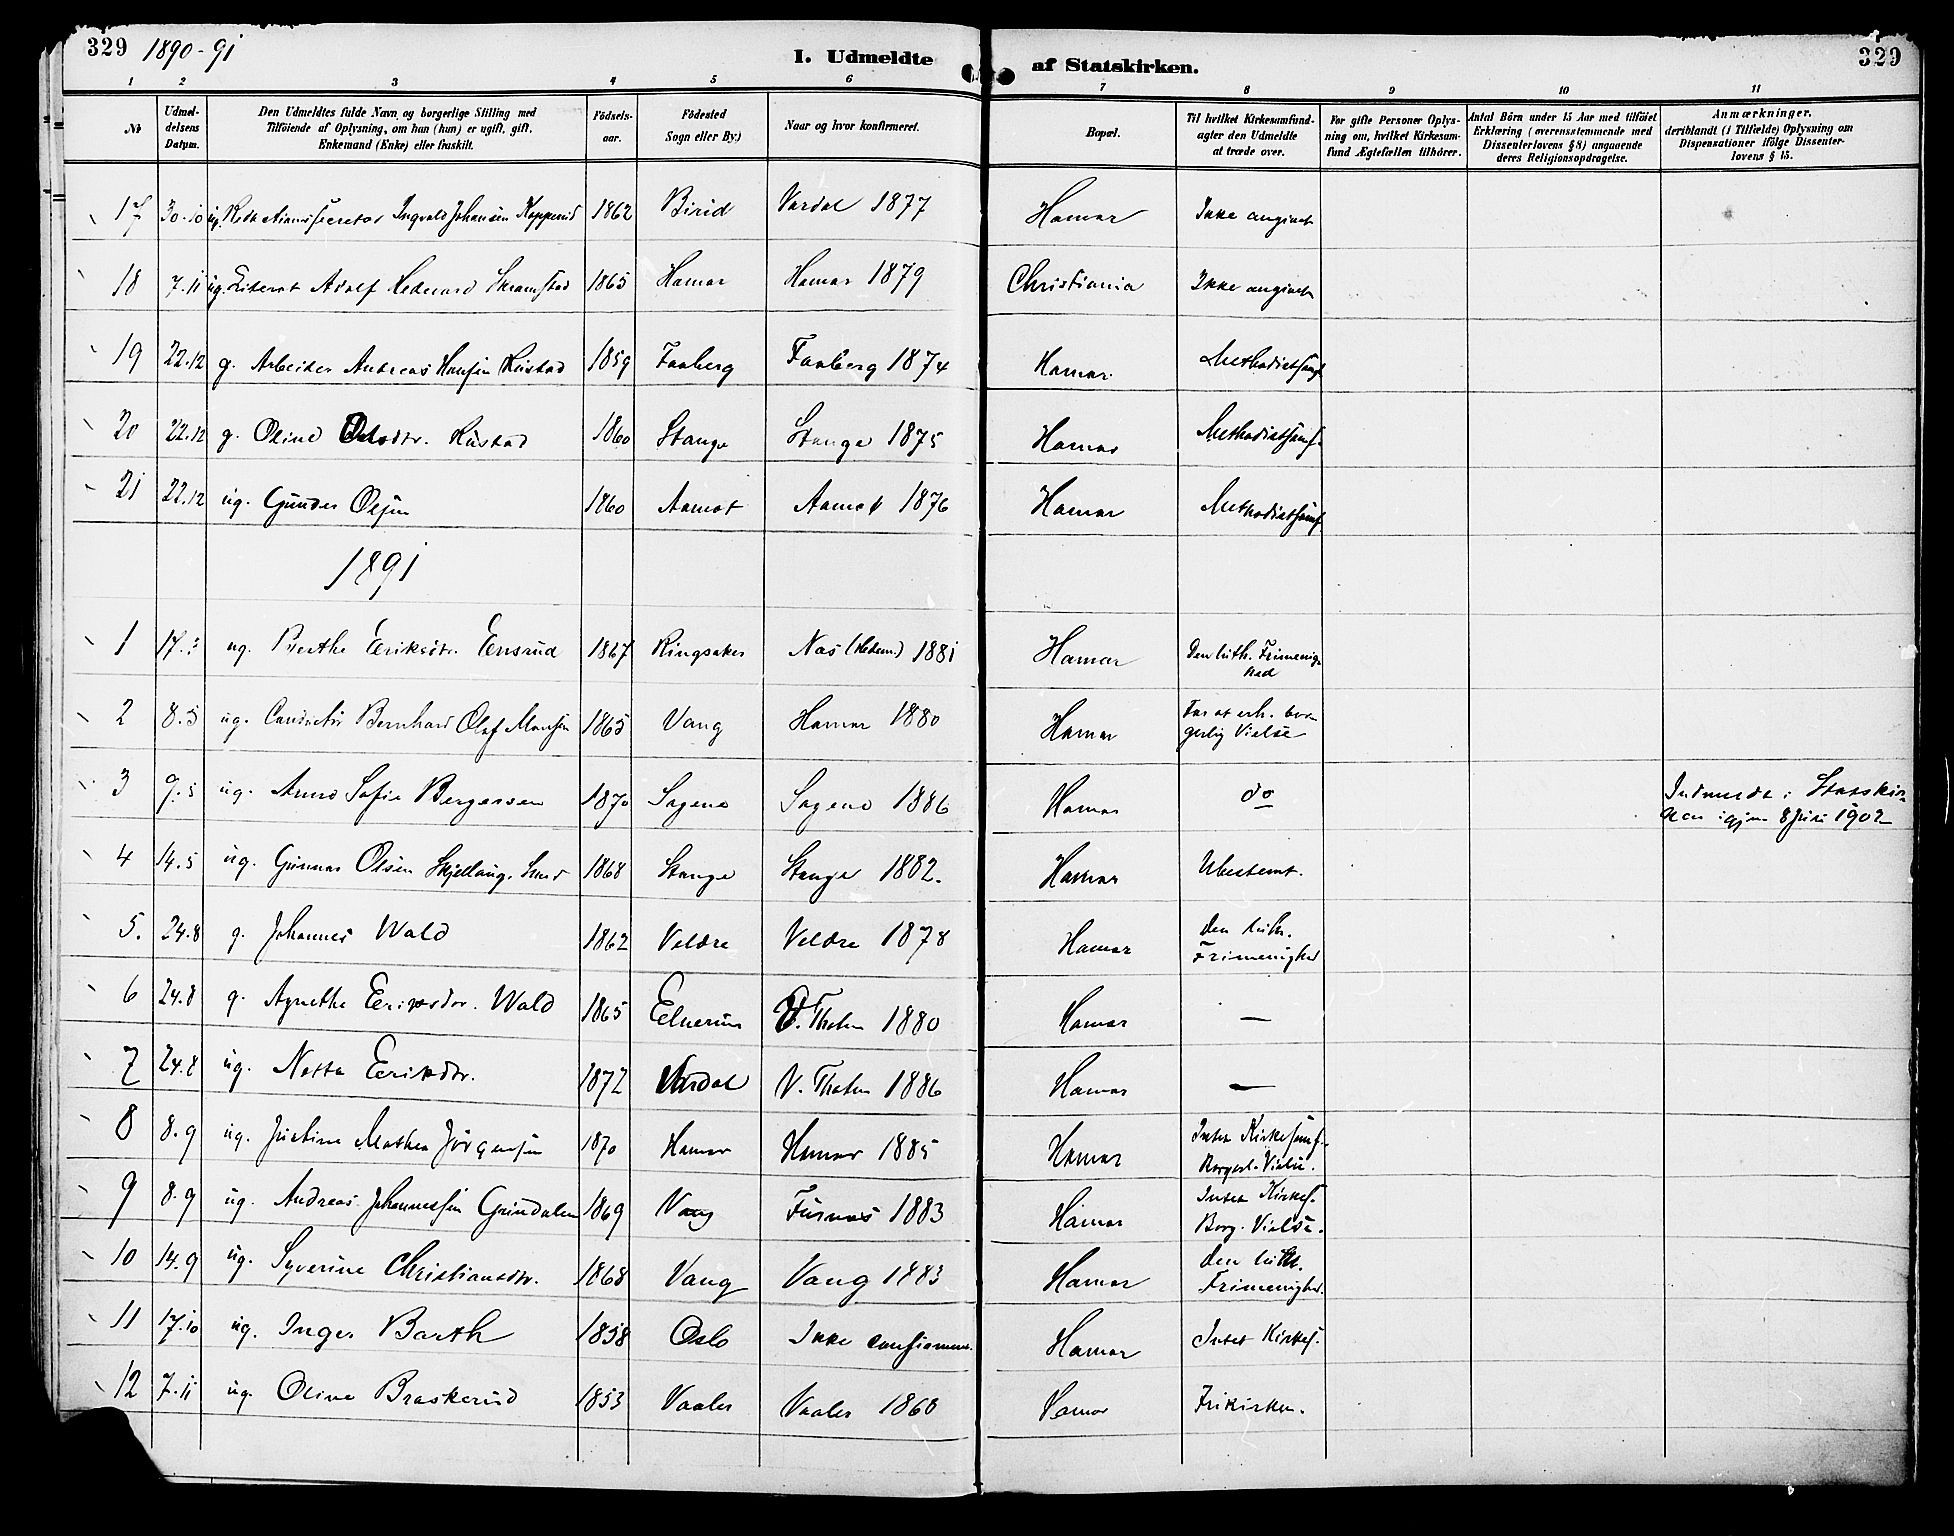 329 1890-91 I. Udmeldte af Statskirken. 329
1 2 3 4 5 6 7 8 9 10 11
№ Udmeldelsens Datum. Den Udmeldtes fulde Navn og borgerlige Stilling med Tilföiende af Oplysning, om han (hun) er ugift, gift, Enkemand (Enke) eller fraskilt. Födselsaar. Födested Sogn eller By.) Naar og hvor konfirmeret. Bopæl. Til hvilket Kirkesamfund agter den Udmeldte at træde over. For gifte Personer Oplysning om, hvilket Kirkesamfund Ægtefællen tilhörer. Antal Börn under 15 Aar med tilföiet Erklæring (overensstemmende med Dissenterlovens § 8) angaaende deres Religionsopdragelse. Anmærkninger, deriblandt (i Tilfælde) Oplysning om Dispensationer ifölge Dissenterlovens § 15.
17 30.10 ug. Redaktionssecretær Ingvald Johansen Kopperud 1862 Birid Vardal 1877 Hamar Ikke angivet
18 7.11 ug. Literat Adolf Hedvard Skramstad 1865 Hamar Hamar 1879 Christiania Ikke angivet
19 22.12 g. Arbeider Andreas Hansen Rustad 1859 Faaberg Faaberg 1874 Hamar Methodistsamf.
20 22.12 g. Oline Olsdtr. Rustad 1860 Stange Stange 1875 Hamar Methodistsamf.
21 22.12 ug. Gunder Olsen 1860 Aamot Aamot 1876 Hamar Methodistsamf.
1891
1 17.3 ug. Berthe Eriksdtr. Ensrud 1867 Ringsaker Næs (Hedem.) 1881 Hamar Den luth. Frimenighed
2 8.5 ug. Conductør Bernhard Olaf Monsen 1865 Vang Hamar 1880 Hamar For at erh. borgerlig Vielse
3 9.5 ug. Anna Sofie Bergersen 1870 Sagene Sagene 1886 Hamar do Indmeldt i Statskirken igjen 8 Juni 1902
4 14.5 ug. Gunnar Olsen Skjellang. 1868 Stange Stange 1882. Hamar Ubestemt.
5. 24.8 g. Johannes Wold 1862 Veldre Veldre 1878 Hamar Den luth. Frimenighed
6 24.8 g. Agnethe Eriksdtr. Wold 1865 Elverum V. Thoten 1880 Hamar —
7 24.8 ug. Netta Eriksdtr. 1872 Vardal V. Thoten 1886 Hamar —
8 8.9 ug. Justine Mathea Jörgensen 1870 Hamar Hamar 1885 Hamar Intet Kirkesamf. Borgerl. Vielse.
9 8.9 ug. Andreas Johannessen Grindalen 1869 Vang Furnæs 1883 Hamar Intet Kirkes. Borg. Vielse.
10 14.9 ug. Syverine Christiansdtr. 1868 Vang Vang 1883 Hamar Den luth. Frimenighed.
11 17.10 ug. Inger Barth 1858 Oslo Ikke confirmeret. Hamar Intet Kirkes.
12 7.11 ug. Oline Braskerud 1853 Vaaler Vaaler 1868 Hamar Frikirken.